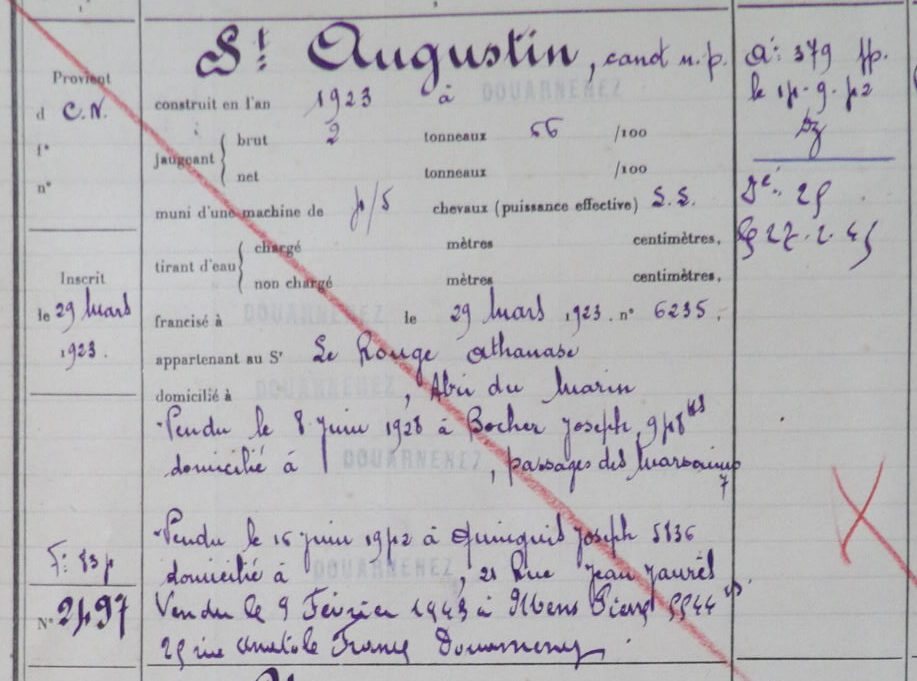 Provient
d C.N.
f°
n°
Inscrit
le 29 Mars
1923.
N° 2497
St Augustin, canot n.p.
construit en l'an 1923 à DOUARNENEZ
jaugeant brut 2 tonneaux 56 /100
net tonneaux /100
muni d'une machine de 4/5 chevaux (puissance effective) S.S.
tirant d'eau chargé mètres centimètres,
non chargé mètres centimètres,
francisé à DOUARNENEZ le 29 Mars 1923. n° 6235,
appartenant au Sr Le Rouge Athanase
domicilié à DOUARNENEZ, Abri du Marin
Vendu le 8 Juin 1928 à Bocher Joseph,
domicilié à DOUARNENEZ, passages des Marsouins
7
Vendu le 15 juin 1942 à Quinquis Joseph 5836
domicilié à DOUARNENEZ, 21 Rue Jean Jaurès
Vendu le 9 Février 1943 à Pierre
25 rue Anatole France Douarnenez
a: 379 fp.
le 14-9-42
Dz
25
27.2.45